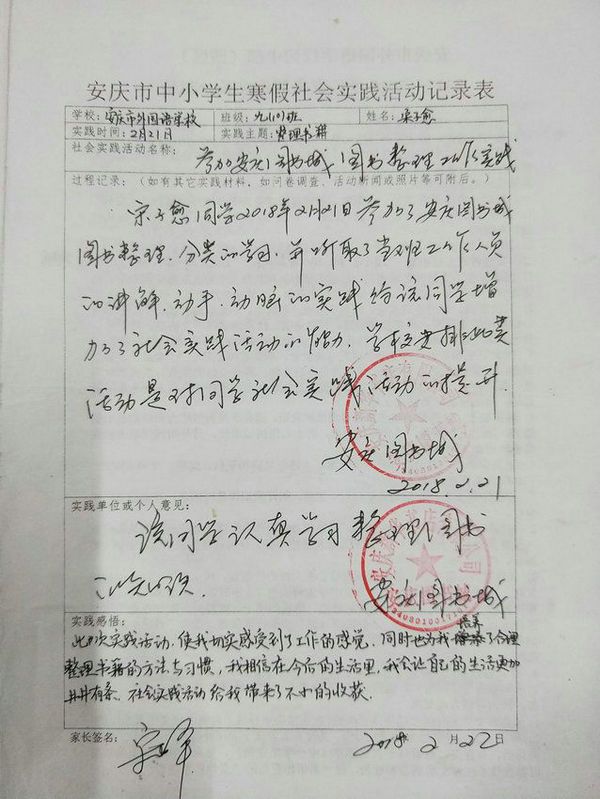 安庆市中小学生寒假社会实践活动记录表
学校：安庆市外国语学校 班级：九(10)班 姓名：宋子愈
实践时间：2月21日 实践主题：整理书籍
社会实践活动名称：参加安庆图书城图书整理工作实践
过程记录：（如有其它实践材料，如问卷调查、活动新闻或照片等可附后。）
宋子愈同学2018年2月21日参加了安庆图书城
图书整理、分类的学习，并听取了当班工作人员
的讲解，动手、动脑的实践给该同学增
加了社会实践活动的能力，学校安排此类
活动是对同学社会实践活动的提升。
安庆图书城
2018.2.21
实践单位或个人意见：
该同学认真学习整理图书
的知识。
安庆图书城
实践感悟：
此次实践活动，使我切实感受到了工作的感觉，同时也为我培养了合理
整理书籍的方法与习惯，我相信在今后的生活里，我会让自己的生活更加
井井有条。社会实践活动给我带来了不小的收获。
家长签名： 2018年2月22日